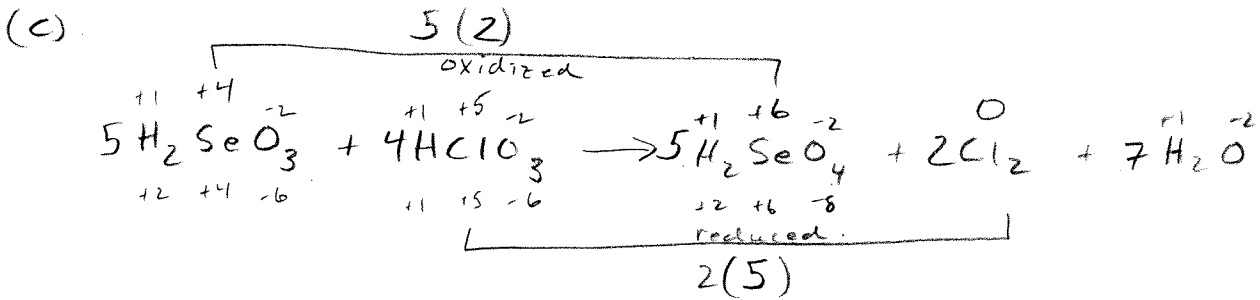 (c)
5(2)
oxidized
+1 +4 -2 +1 +5 -2 +1 +6 -2 0 +1 -2
5H₂SeO₃ + 4HClO₃ → 5H₂SeO₄ + 2Cl₂ + 7H₂O
+2 +4 -6 +1 +5 -6 +2 +6 -8
reduced.
2(5)